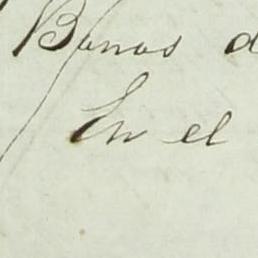 Bonos d
En el